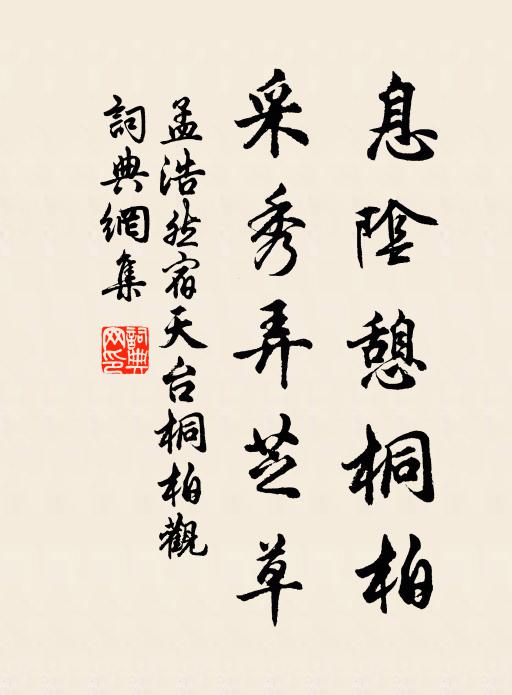 息陰憩桐柏
采秀弄芝草
孟浩然宿天台桐柏觀
詞典網集
詞典網印